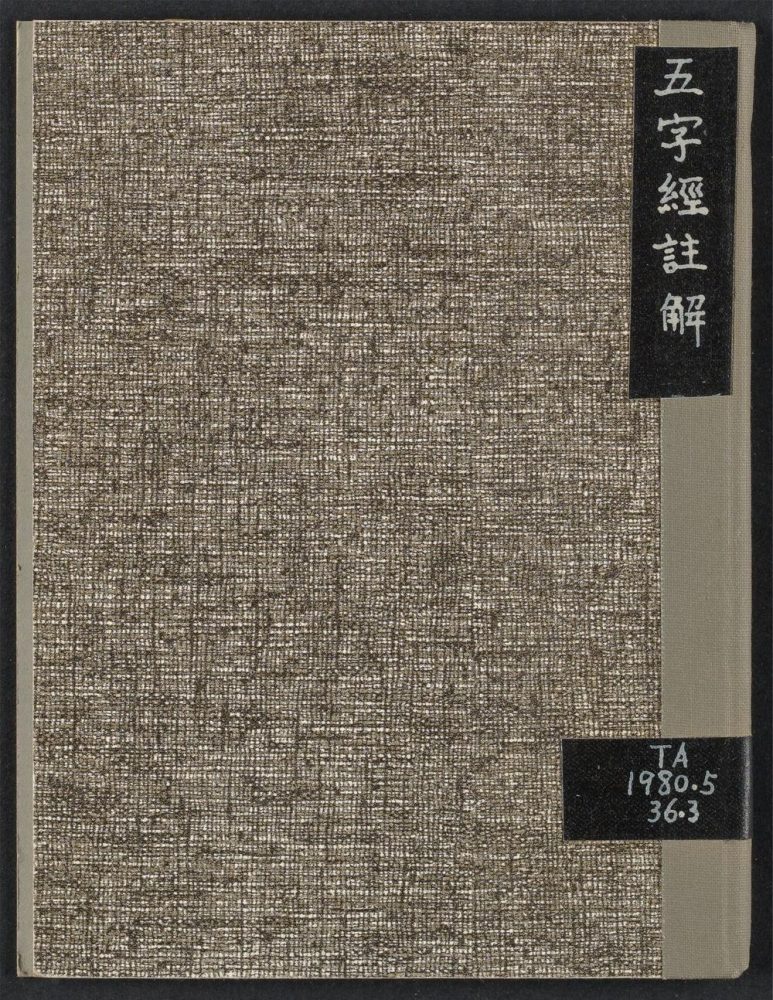 五字經註解
TA
1980.5
36.3